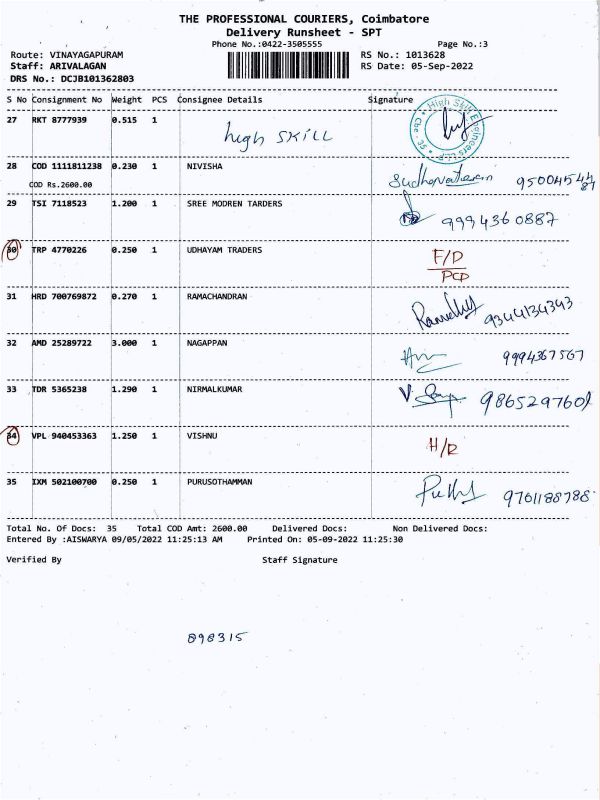 THE PROFESSIONAL COURIERS, Coimbatore
Delivery Runsheet - SPT
Phone No.:0422-3505555 Page No.:3
Route: VINAYAGAPURAM RS No.: 1013628
Staff: ARIVALAGAN RS Date: 05-Sep-2022
DRS No.: DCJB101362803
S No Consignment No Weight PCS Consignee Details Signature
27 RKT 8777939 0.515 1 High SKILL
High Skill Engineers LLP Cbe
28 COD 1111811238 0.230 1 NIVISHA
COD Rs.2600.00
29 TSI 7118523 1.200 1 SREE MODREN TARDERS 9994360887
30 TRP 4770226 0.250 1 UDHAYAM TRADERS F/D
PCD
31 HRD 700769872 0.270 1 RAMACHANDRAN 9344134343
32 AMD 25289722 3.000 1 NAGAPPAN 9994367567
33 TDR 5365238 1.290 1 NIRMALKUMAR
34 VPL 940453363 1.250 1 VISHNU H/R
35 IXM 502100700 0.250 1 PURUSOTHAMMAN 9761188788
Total No. Of Docs: 35 Total COD Amt: 2600.00 Delivered Docs: Non Delivered Docs:
Entered By :AISWARYA 09/05/2022 11:25:13 AM Printed On: 05-09-2022 11:25:30
Verified By Staff Signature
898315